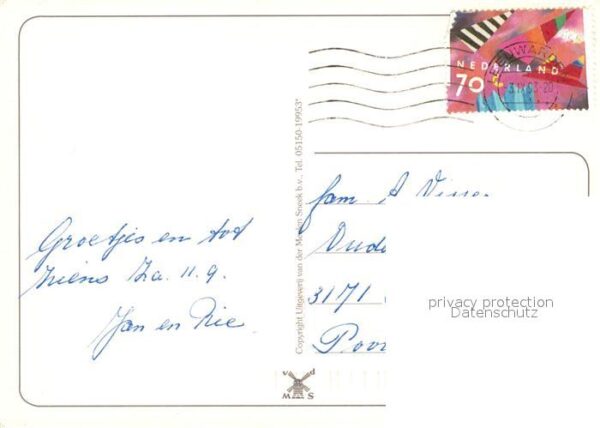 Groetjes en tot
ziens Za. 11.9.
Jan en Rie.
Copyright Uitgeverij van der Meulen Sneek b.v., Tel. 05150-19953*
NEDERLAND
70
fam. A Visser
Oude
3171
Poor
privacy protection
Datenschutz
v d
M S